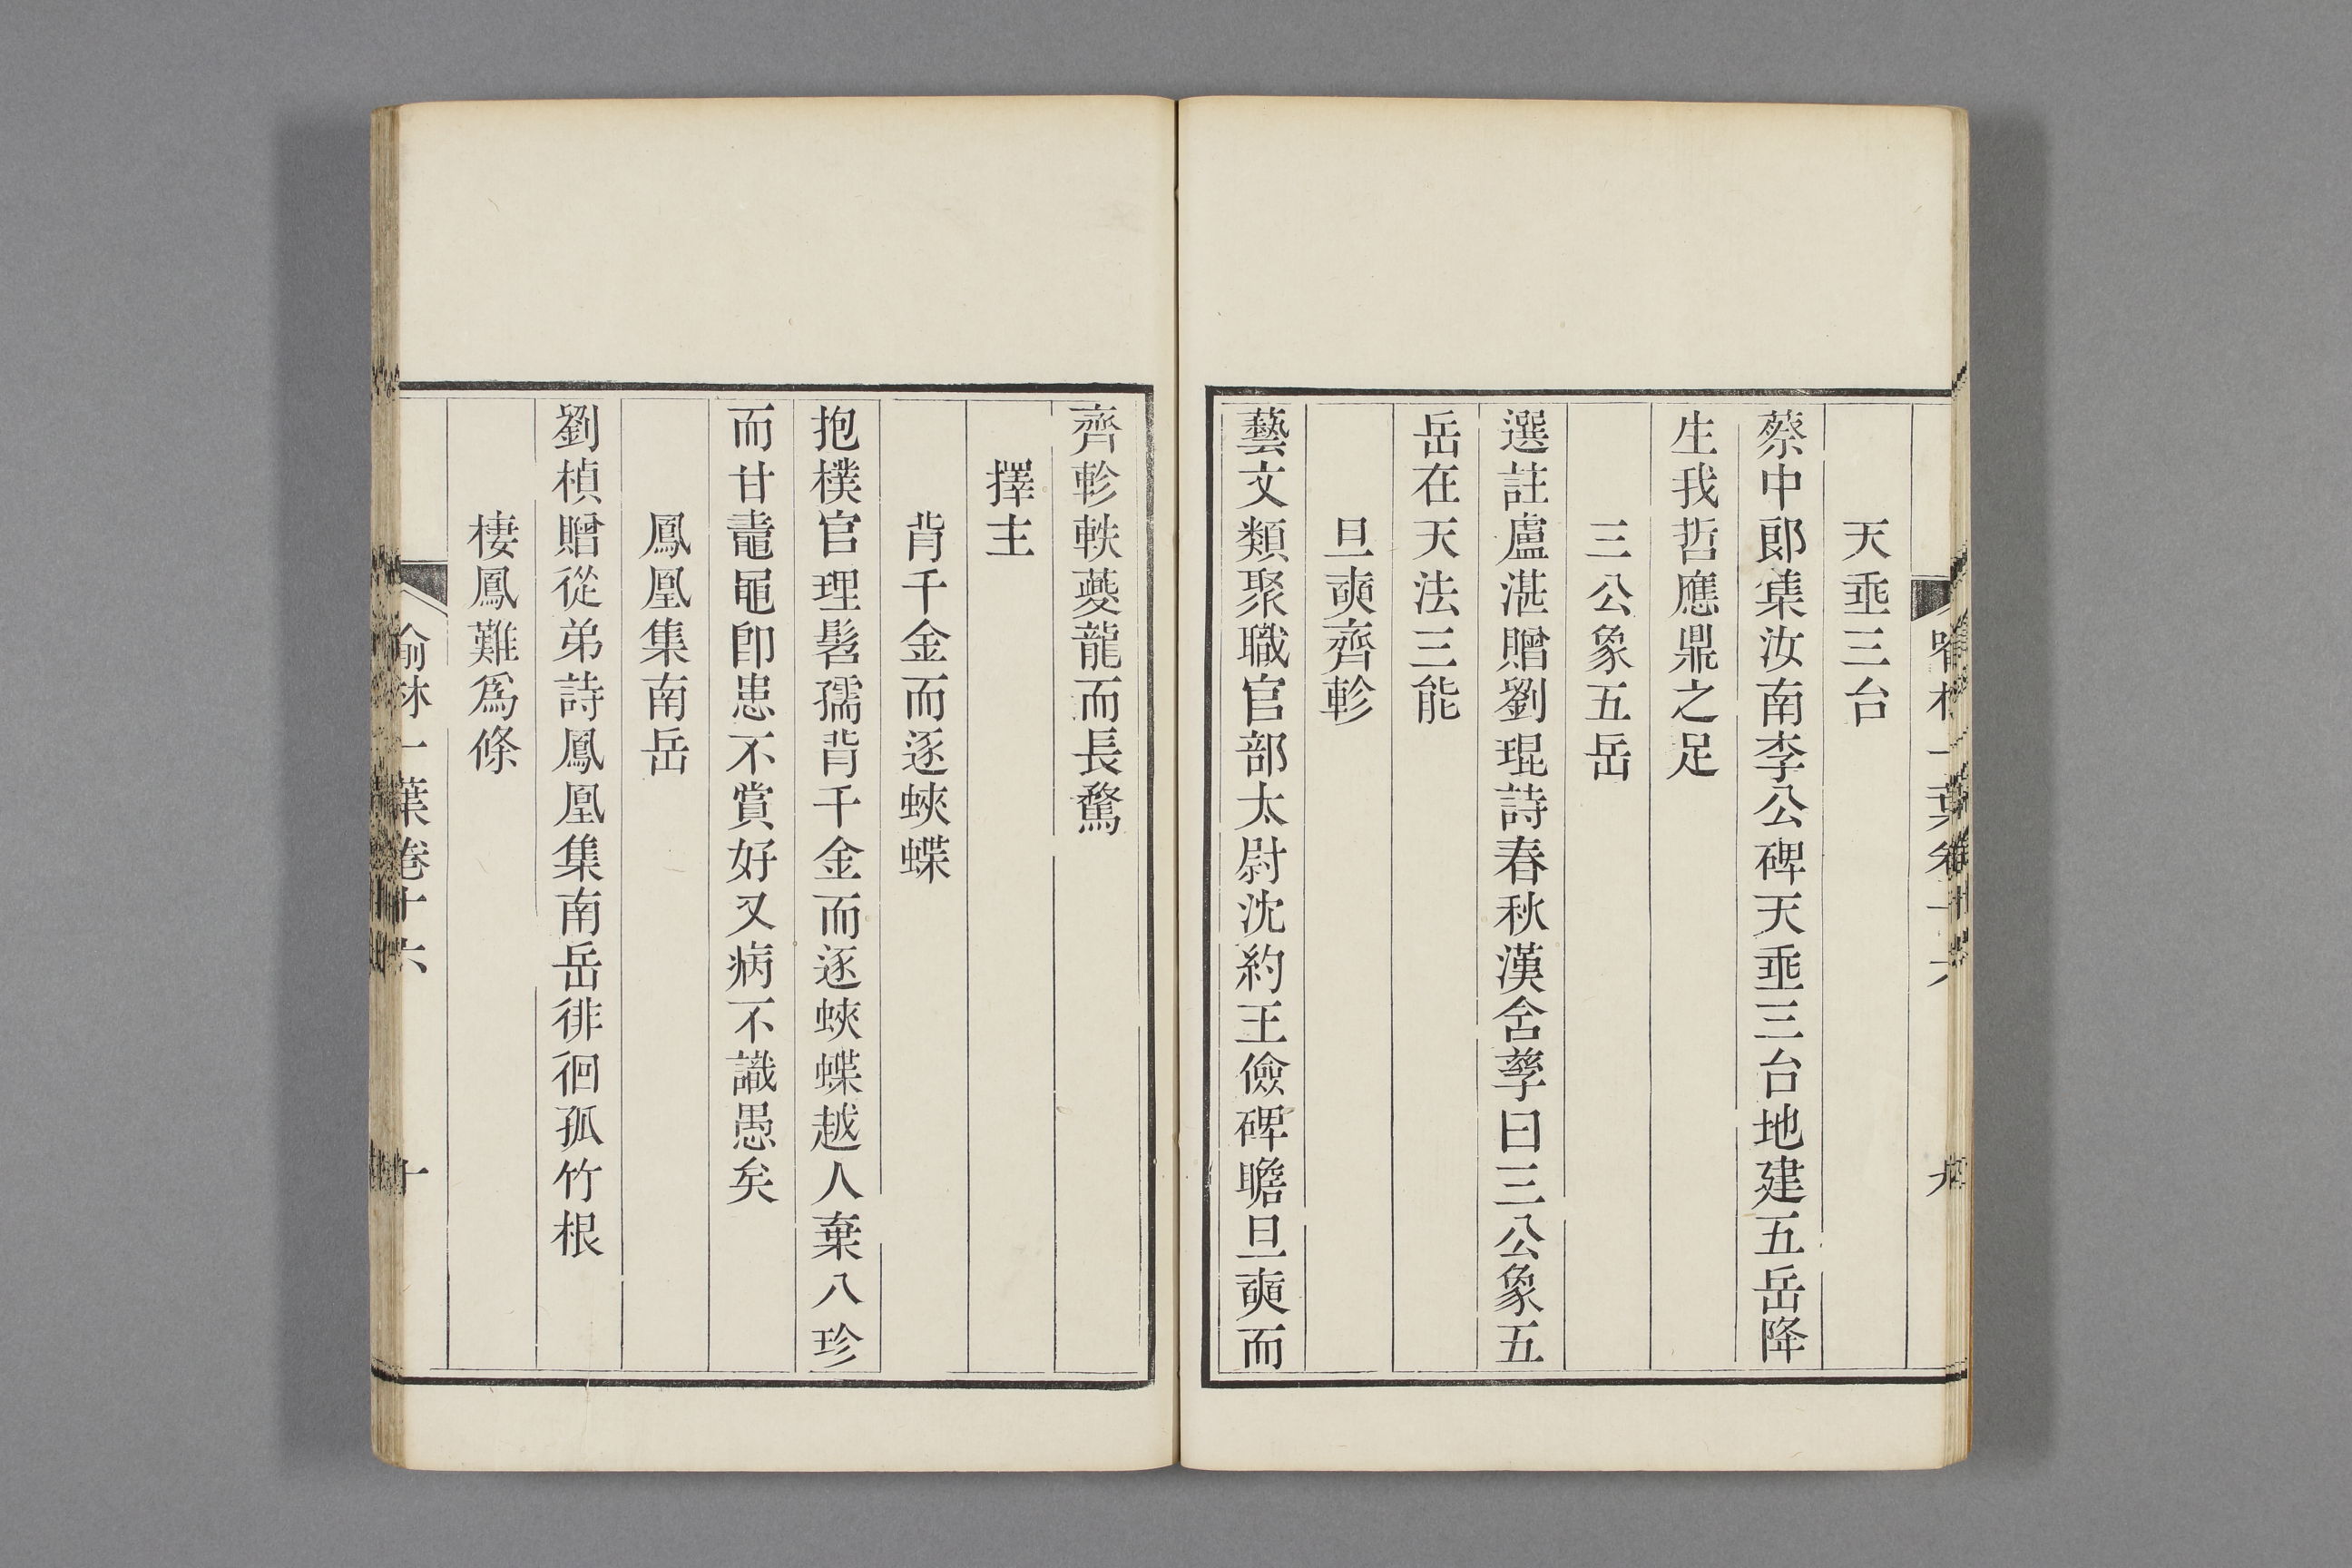 天垂三台
蔡中郎集汝南李公碑天垂三台地建五岳降
生我哲應鼎之足
三公象五岳
選註盧湛贈劉琨詩春秋漢含孳曰三公象五
岳在天法三能
旦奭齊軫
藝文類聚職官部太尉沈約王儉碑瞻旦奭而
齊軫軼夔龍而長騖
擇主
背千金而逐蛺蝶
抱樸官理髫孺背千金而逐蛺蝶越人棄八珍
而甘鼃黽卽患不賞好又病不識愚矣
鳳凰集南岳
劉楨贈從弟詩鳳凰集南岳徘徊孤竹根
棲鳳難爲條
喻林一葉卷十六
十